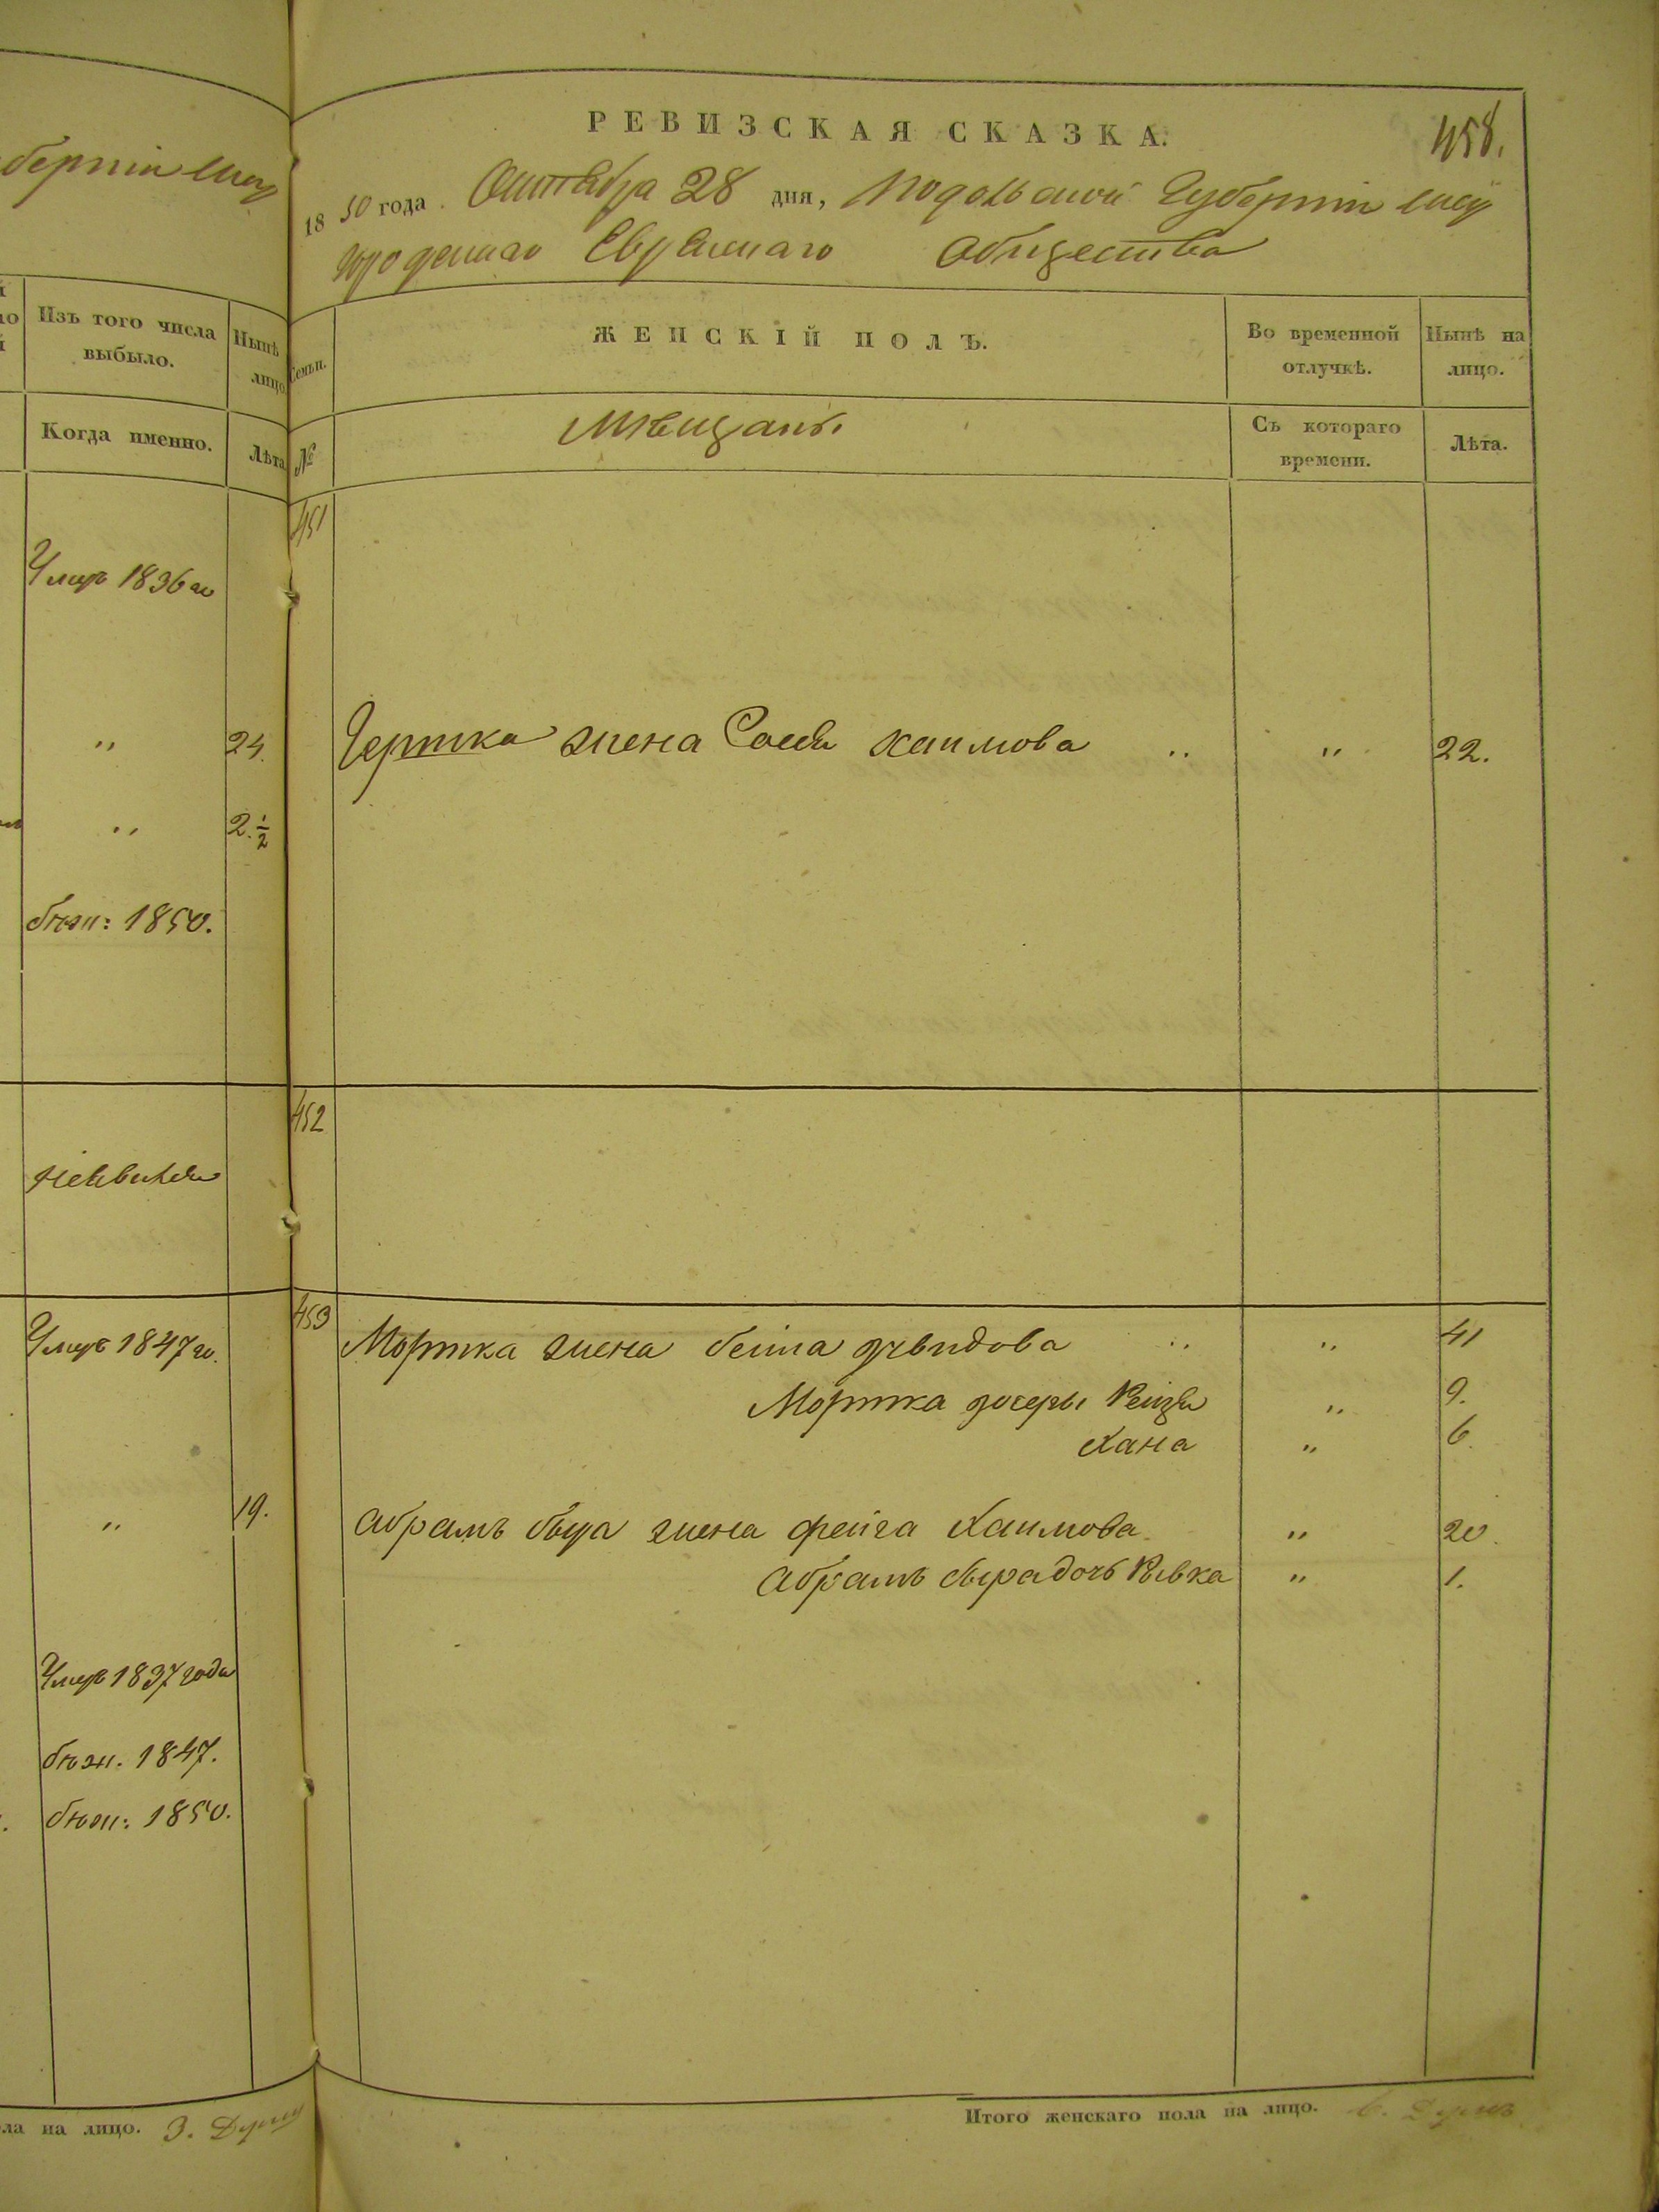 РЕВИЗСКАЯ СКАЗКА.
458.
1850 года Октября 28 дня, Подольской Губерніи
Еврейскаго Общества
Изъ того числа выбыло.
Нынѣ
лицо
Когда именно.
Лѣта
Умеръ 1836 го
" 24.
" 2.½
бѣж: 1850.
Умеръ 1847 го.
" 19.
Умеръ 1837 года
бѣж. 1847.
бѣж: 1850.
ла на лицо. 3. Душ
Семьи.
ЖЕНСКІЙ ПОЛЪ.
Во временной отлучкѣ.
Нынѣ на лицо.
№
Мѣщанъ.
Съ котораго времени.
Лѣта.
451
Гершка жена Сося Хаимова " " 22.
452
453
Мортка жена бейла Давидова " " 41
Мортка дочеры Рейзя " 9.
Хана " 6.
Абрамъ жена фейга Хаимова " 20.
Абрамъ дочь Ривка " 1.
Итого женскаго пола на лицо. 6. Душъ